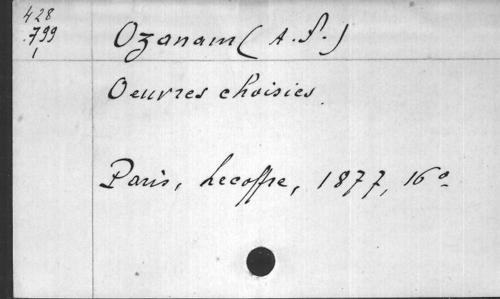 428
799
1
Ozanam (A. F.)
Oeuvres choisies.
Paris, Lecoffre, 1877, 16°